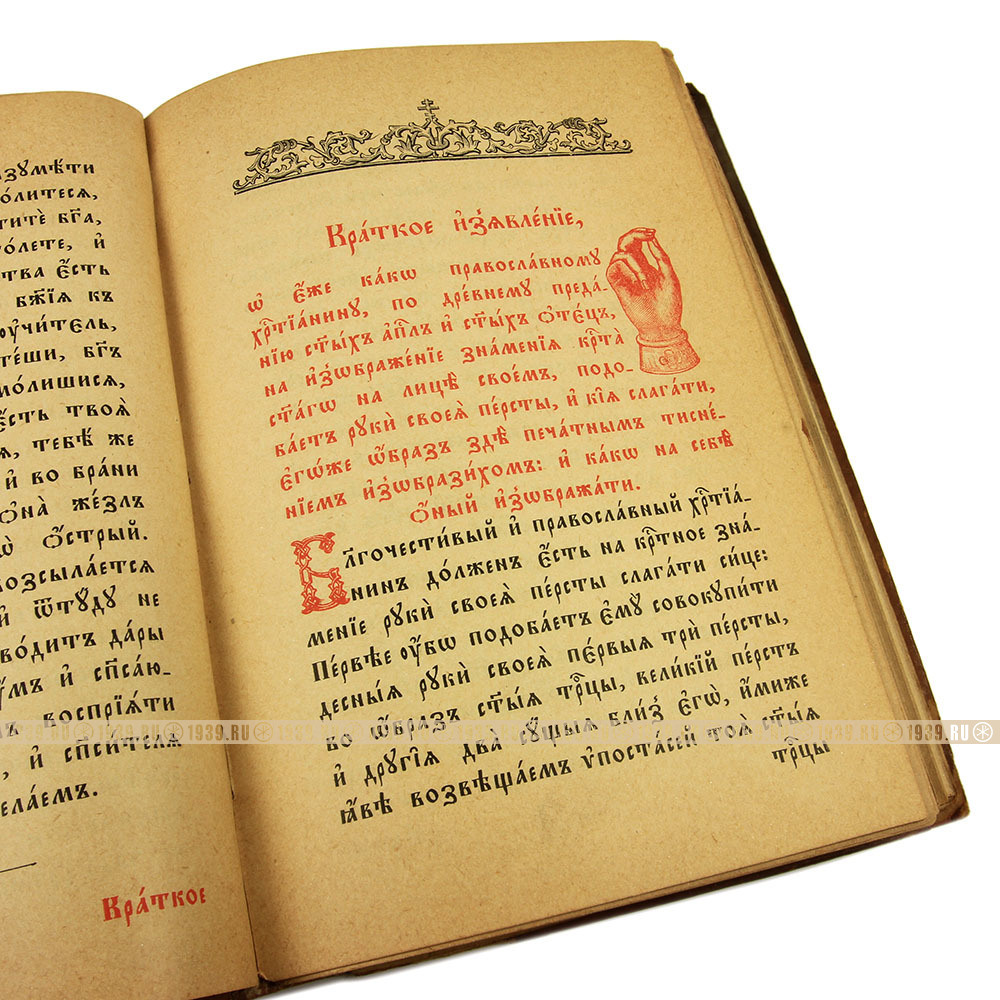 зꙋмѣ́ти
о́литеся,
титѐ бг҃а,
о́лете, и҆
тва є҆́сть
бж҃їя къ
оу҆чи́тель,
те́ши, бг҃ъ
мо́лишися,
є҆́сть твоѧ̀
я, тебѣ́ же
и҆ во бра́ни
ѻ҆на̀ же́злъ
ѻ҆́стрый.
возсыла́ется
и҆ ѿтꙋ́дꙋ не
во́дитъ да́ры
ꙋ҆́мъ и҆ спⷭ҇аю-
воспрїѧ́ти
, и҆ спⷭ҇и́телѧ
ела́емъ.
Кра́ткое
Кра́ткое и҆з̾ѧвле́нїе,
ѡ҆ є҆́же ка́кѡ правосла́вному
хрⷭ҇тїа́нину, по дре́внему преда́-
нїю ст҃ы́хъ а҆пⷭ҇лъ и҆ ст҃ы́хъ ѻ҆те́цъ,
на и҆з̾ѡбраже́нїе зна́менїя крⷭ҇та̀
ст҃а́гѡ на лицѣ̀ свое́мъ, подо-
ба́етъ рꙋкѝ своеѧ̀ пе́рсты, и҆ кі̑я слага́ти,
є҆гѡ́же ѡ҆́браз здѣ̀ печа́тнымъ тисне́-
нїемъ и҆з̾ѡбрази́хомъ: и҆ ка́кѡ на себѣ̀
ѻ҆́ный и҆з̾ѡбража́ти.
Бл҃гочести́вый и҆ правосла́вный хрⷭ҇тїа́-
нинъ до́лженъ є҆́сть на крⷭ҇тное зна́-
менїе рꙋкѝ своеѧ̀ пе́рсты слага́ти си́це:
Пе́рвѣе ᲂу҆́бѡ подоба́етъ є҆мꙋ̀ совокупи́ти
десны́я рꙋкѝ своеѧ̀ пе́рвыя трѝ пе́рсты,
во ѡ҆́бразъ ст҃ы́я трⷪ҇цы, вели́кїй пе́рстъ
и҆ дрꙋгі̑я два̀ сꙋ́щыя бли́з̾ є҆гѡ̀, и҆́миже
ꙗ҆́вѣ возвѣща́емъ ѵ҆поста́сей тоѧ̀ ст҃ы́я
трⷪ҇цы
1939.RU 1939.RU 1939.RU